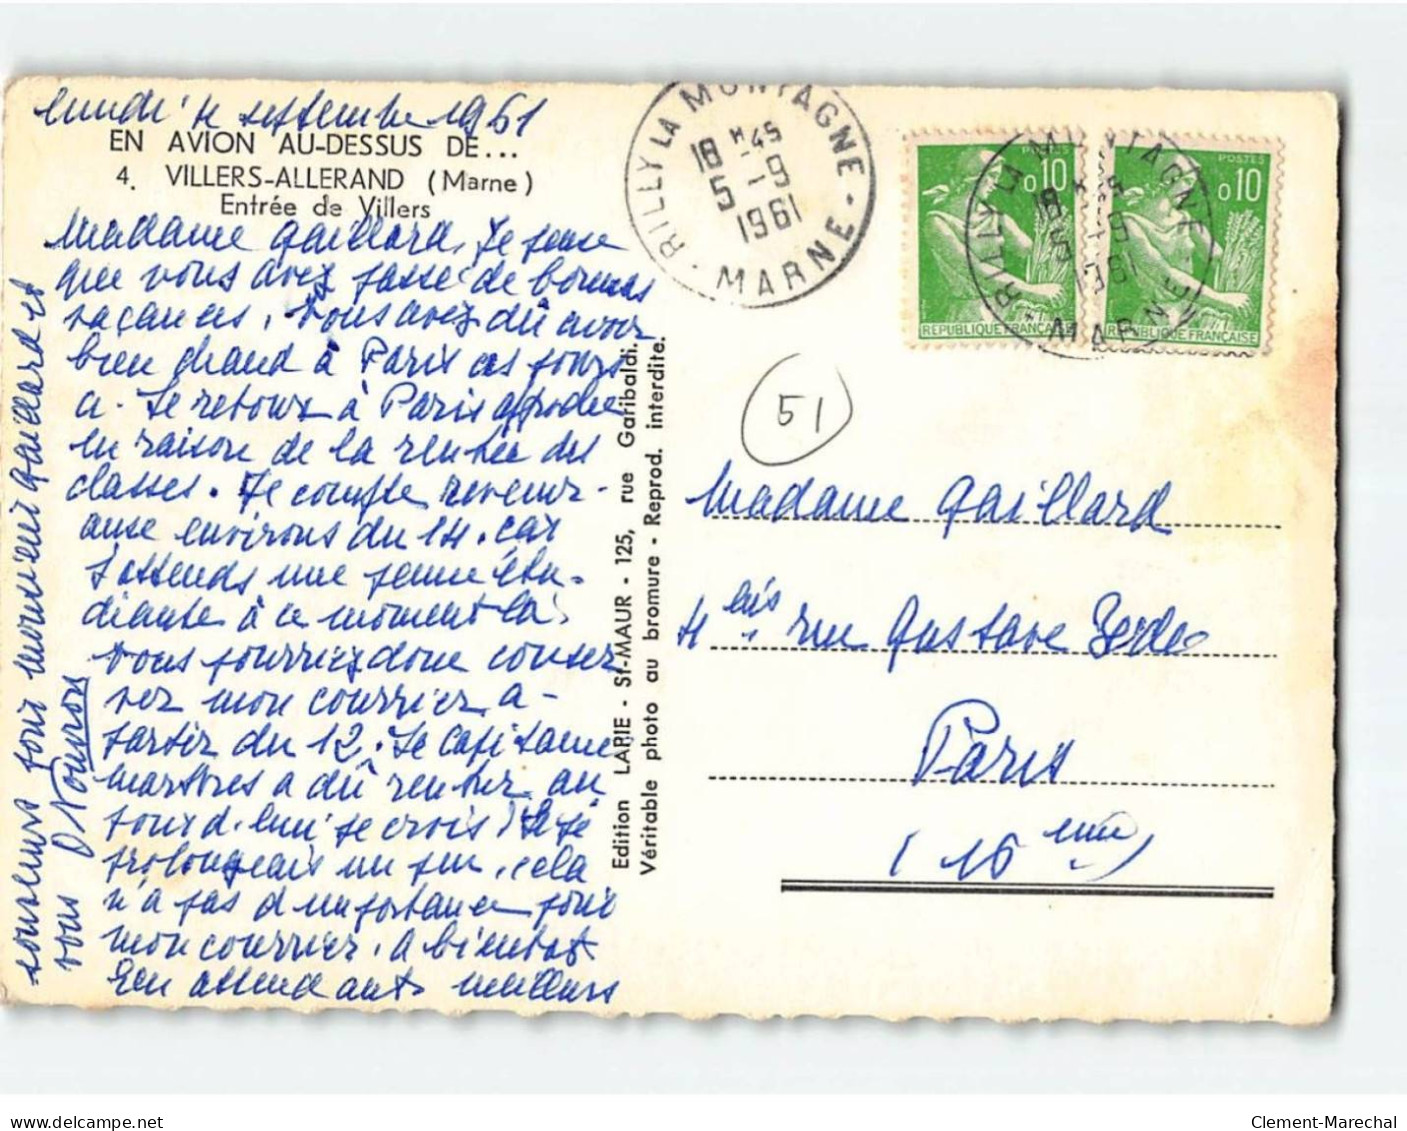 lundi 4 septembre 1961
EN AVION AU-DESSUS DE...
4. VILLERS-ALLERAND (Marne)
Entrée de Villers
Madame Gaillard, Je pense
que vous avez passé de bonnes
vacances, vous avez dû avoir
bien chaud à Paris ces jours
ci. Le retour à Paris approche
en raison de la rentrée des
classes. Je compte revenir
aux environs du 14. car
j'attends une jeune étu-
diante à ce moment là
vous pourriez donc conser
ver mon courrier à
partir du 12. Le capitaine
a dû rentrer au
jourd'hui je crois! Si je
prolongeais un peu, cela
n'a pas d'importance pour
mon courrier. A bientot
En attendant meilleurs
souvenirs pour monsieur Gaillard et
vous
Edition LAPIE - St-MAUR - 125, rue Garibaldi.
Véritable photo au bromure - Reprod. interdite.
RILLY LA MONTAGNE
18 H 45
5 - 9
1961
MARNE
POSTES
0,10
REPUBLIQUE FRANÇAISE
POSTES
0,10
REPUBLIQUE FRANÇAISE
RILLY LA MONTAGNE
18 H 45
5 - 9
1961
MARNE
51
Madame Gaillard
4 bis rue Gustave Zédé
Paris
(16 ème)
delcampe.net
Clement-Marechal